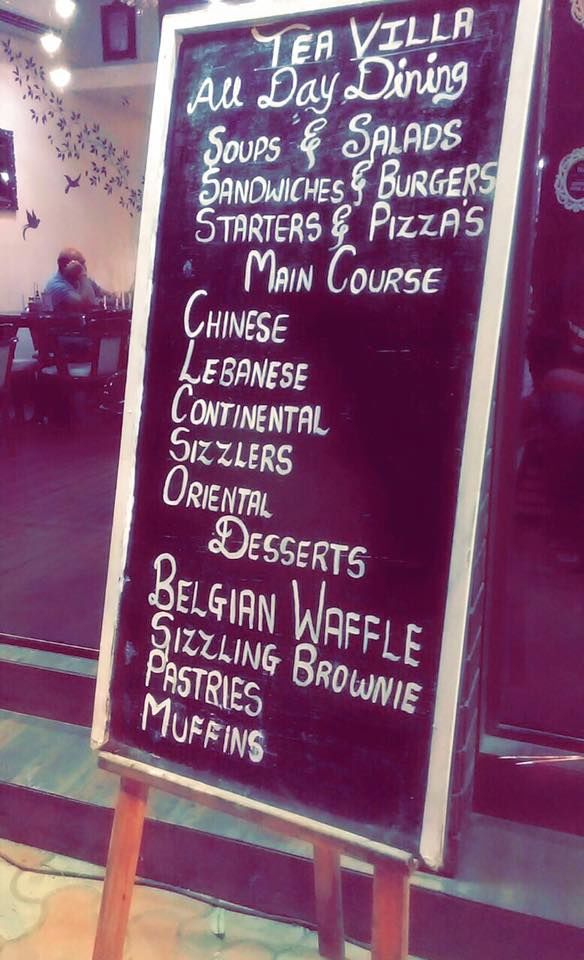 TEA VILLA
All Day Dining
SOUPS & SALADS
SANDWICHES & BURGERS
STARTERS & PIZZA'S
MAIN COURSE
CHINESE
LEBANESE
CONTINENTAL
SIZZLERS
ORIENTAL
DESSERTS
BELGIAN WAFFLE
SIZZLING BROWNIE
PASTRIES
MUFFINS